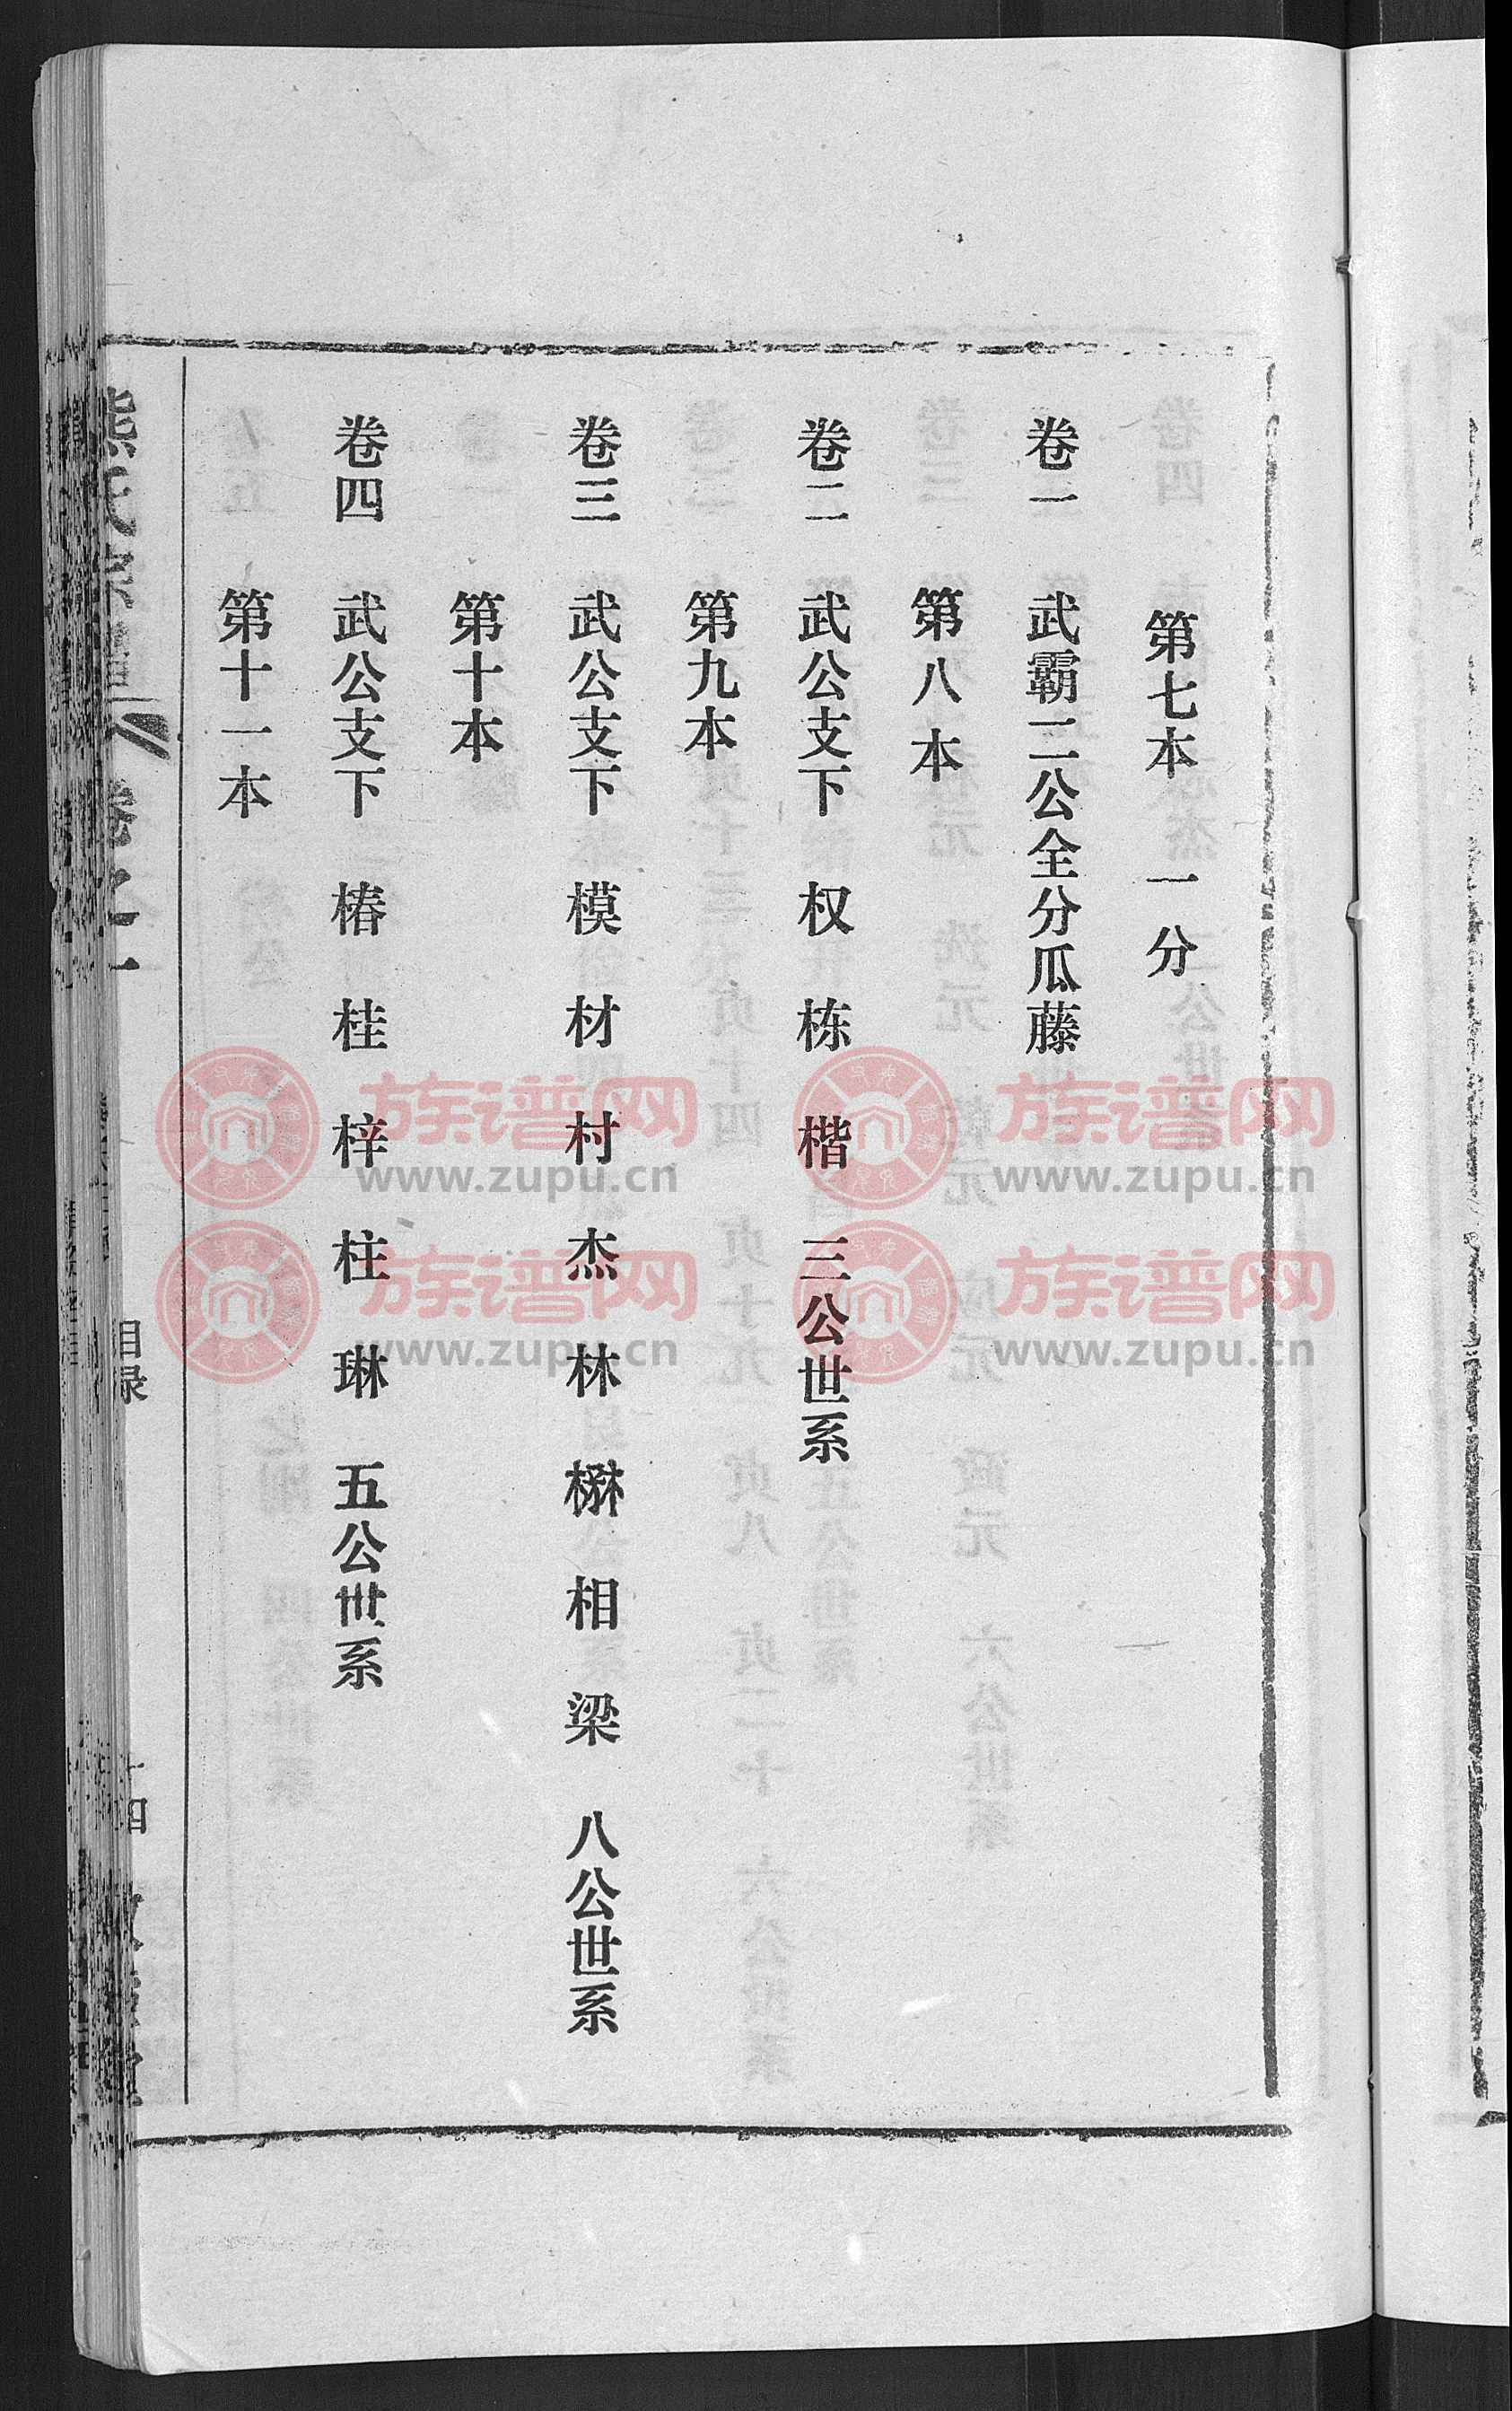 第七本　一分
卷一　武霸二公全分瓜藤
第八本
卷二　武公支下　权　栋　楷　三公世系
第九本
卷三　武公支下　模　材　村　杰　林　楙　相　梁　八公世系
第十本
卷四　武公支下　椿　桂　梓　柱　琳　五公世系
第十一本
熊氏宗谱　卷之一　目录　十四
族谱网
www.zupu.cn
族谱网
www.zupu.cn
族谱网
www.zupu.cn
族谱网
www.zupu.cn